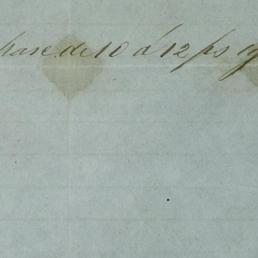 hase de 10 á 12 ps